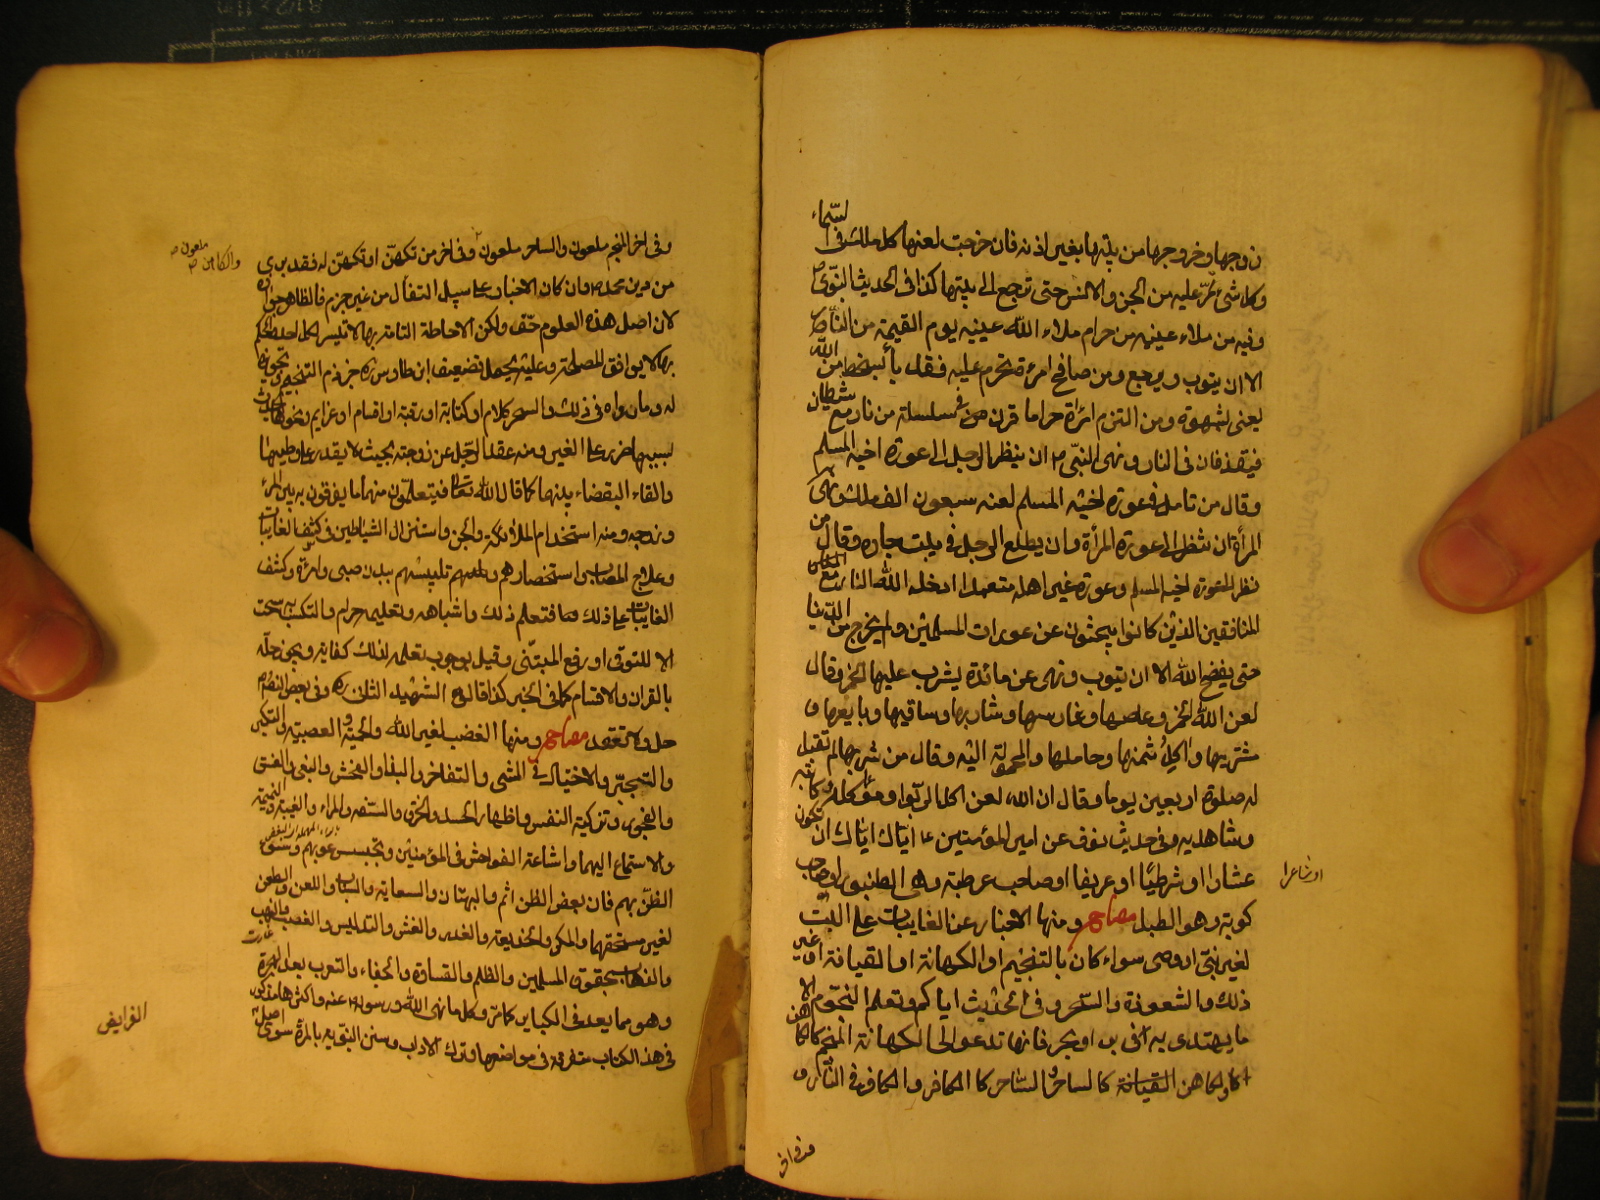 لسّماء
زوجها وخروجها من بيتها بغير اذنه فان خرجت لعنها كل ملك فى
وكل شئ تمرّ عليه من الجن والانس حتى ترجع الى بيتها كذا فى الحديث النبوّى ص
وفيه من ملاء عينيه من حرام ملاء الله عينيه يوم القيمة من النّار
الا ان يتوب ويرجع ومن صافح امرءة تحرم عليه فقد باء بسخط من الله
يعنى لشهوة ومن التزم امرءة حراما قرن فى سلسلة من نار مع شيطان
فيقذفان فى النار ونهى النبّى ص ان ينظر الرجل الى عورة اخيه المسلم
وقال من تامل فى عورة اخيه المسلم لعنه سبعون الف ملك ونهى
المرأة ان تنظر الى عورة المرأة وان يطلع الرجل فى بيت جاره وقال من
نظر الى عورة اخيه المسلم وعورة غير اهله متعمدا ادخله الله النار مع
المنافقين الذين كانوا يبحثون عن عورات المسلمين ولم يخرج من الدنيا
حتى يفضح الله الا ان يتوب ونهى عن مائدة يشرب عليها الخمر وقال
لعن الله الخمر وعاصرها وغارسها وشاربها وساقيها وبايعها و
مشتريها واكل ثمنها وحاملها والمحمولة اليه وقال من شربها لم تقبل
له صلوة اربعين يوما وقال ان الله لعن اكل الربوا وموكله وكاتبه
وشاهديه وفى حديث نوف عن امير المؤمنين ع اياك اياك ان تكون
عشارا او شرطيا او عريفا او صاحب عرطبة وهى الطنبور او صاحب
او شاعرا
كوبة وهو الطبل مصباح ومنها الاخبار عن الغايبات على البت
لغير نبى او وصى سواء كان بالتنجيم او الكهانة او القيافة او غير
ذلك والشعوذة والسّحر وفى الحديث اياكم وتعلم النجوم الا
ما يهتدى به فى بر او بحر فانها تدعو الى الكهانة المنجم كالكاهن
والكاهن كالساحر والساحر كالكافر والكافر فى النّار و
وفى اخر
وفى اخر المنجم ملعون والساحر ملعون وفى اخر من تكهنّ او تكهنّ له فقد برئ
والكاهن ملعون ص
من دين محمد ص وان كان الاخبار على سبيل التفأل من غير جزم فالظاهر جوازه
لان اصل هذه العلوم حق ولكن الاحاطة التامة بها لا تتيسر لكل احد والحكم
بها لا يوافق المصلحة وعليه يحمل تضعيف ابن طاوس ره جزم التنجيم وتجويزه
له وما رواه فى ذلك والسحر كلام او كتابة او رقية او اقسام او عزايم ونحوها يحدث
بسببها ضرر على الغير ومنه عقد الرجل عن زوجته بحيث لا يقدر على وطيها
والقاء البغضاء بينهما كما قال الله تعالى فيتعلمون منهما ما يفرقون به بين المرء
وزوجه ومنه استخدام الملائكة والجن واستنزال الشياطين فى كشف الغايبات
وعلاج المصاب واستحضارهم وتلبيسهم ببدن صبى وامرأة وكشف
الغايبات على ذلك فتعلم ذلك واشباهه وتعليمه حرام والتكسب به سحت
الا للتوقى او رفع المتبنّى وقيل بوجوب تعلمه لذلك كفاية ويجوز حلّه
بالقران والاقسام كما فى الخبر كذا قال الشهيد الثانى ره وفى بعض النصوص
حل ولا تعقد مصباح ومنها الغضب لغير الله والحمية والعصبية والتكبر
والتجبّر والاختيال فى المشى والتفاخر والبذاء والفحش والبغى والفسق
والفجور وتزكية النفس واظهار الحسد والخرق والسفه والمراء والغيبة والنميمة
والاستماع اليهما واشاعة الفواحش فى المؤمنين وتجسس عيوبهم وسوء
الظنّ بهم فان بعض الظن اثم والبهتان والسعاية والسباب واللعن والطعن
لغير مستحقهما والمكر والخديعة والغدر والغش والتدليس والغصب والنهب
والذهاب بحقوق المسلمين والظلم والقساوة والجفاء والتعرب بعد الهجرة
وهو مما يعد فى الكباير كما مرّ وكل ما نهى الله ورسوله ص عنه واكثرها مذكور
فى هذا الكتاب متفرقة فى مواضعها وترك الاداب وسنن النبوّيه بالمرّة سوى
الفرايض